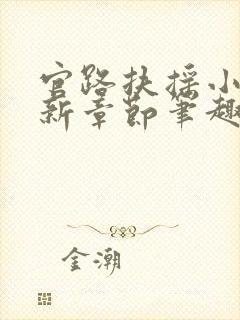 官路扶摇小
新章节笔趣
金潮